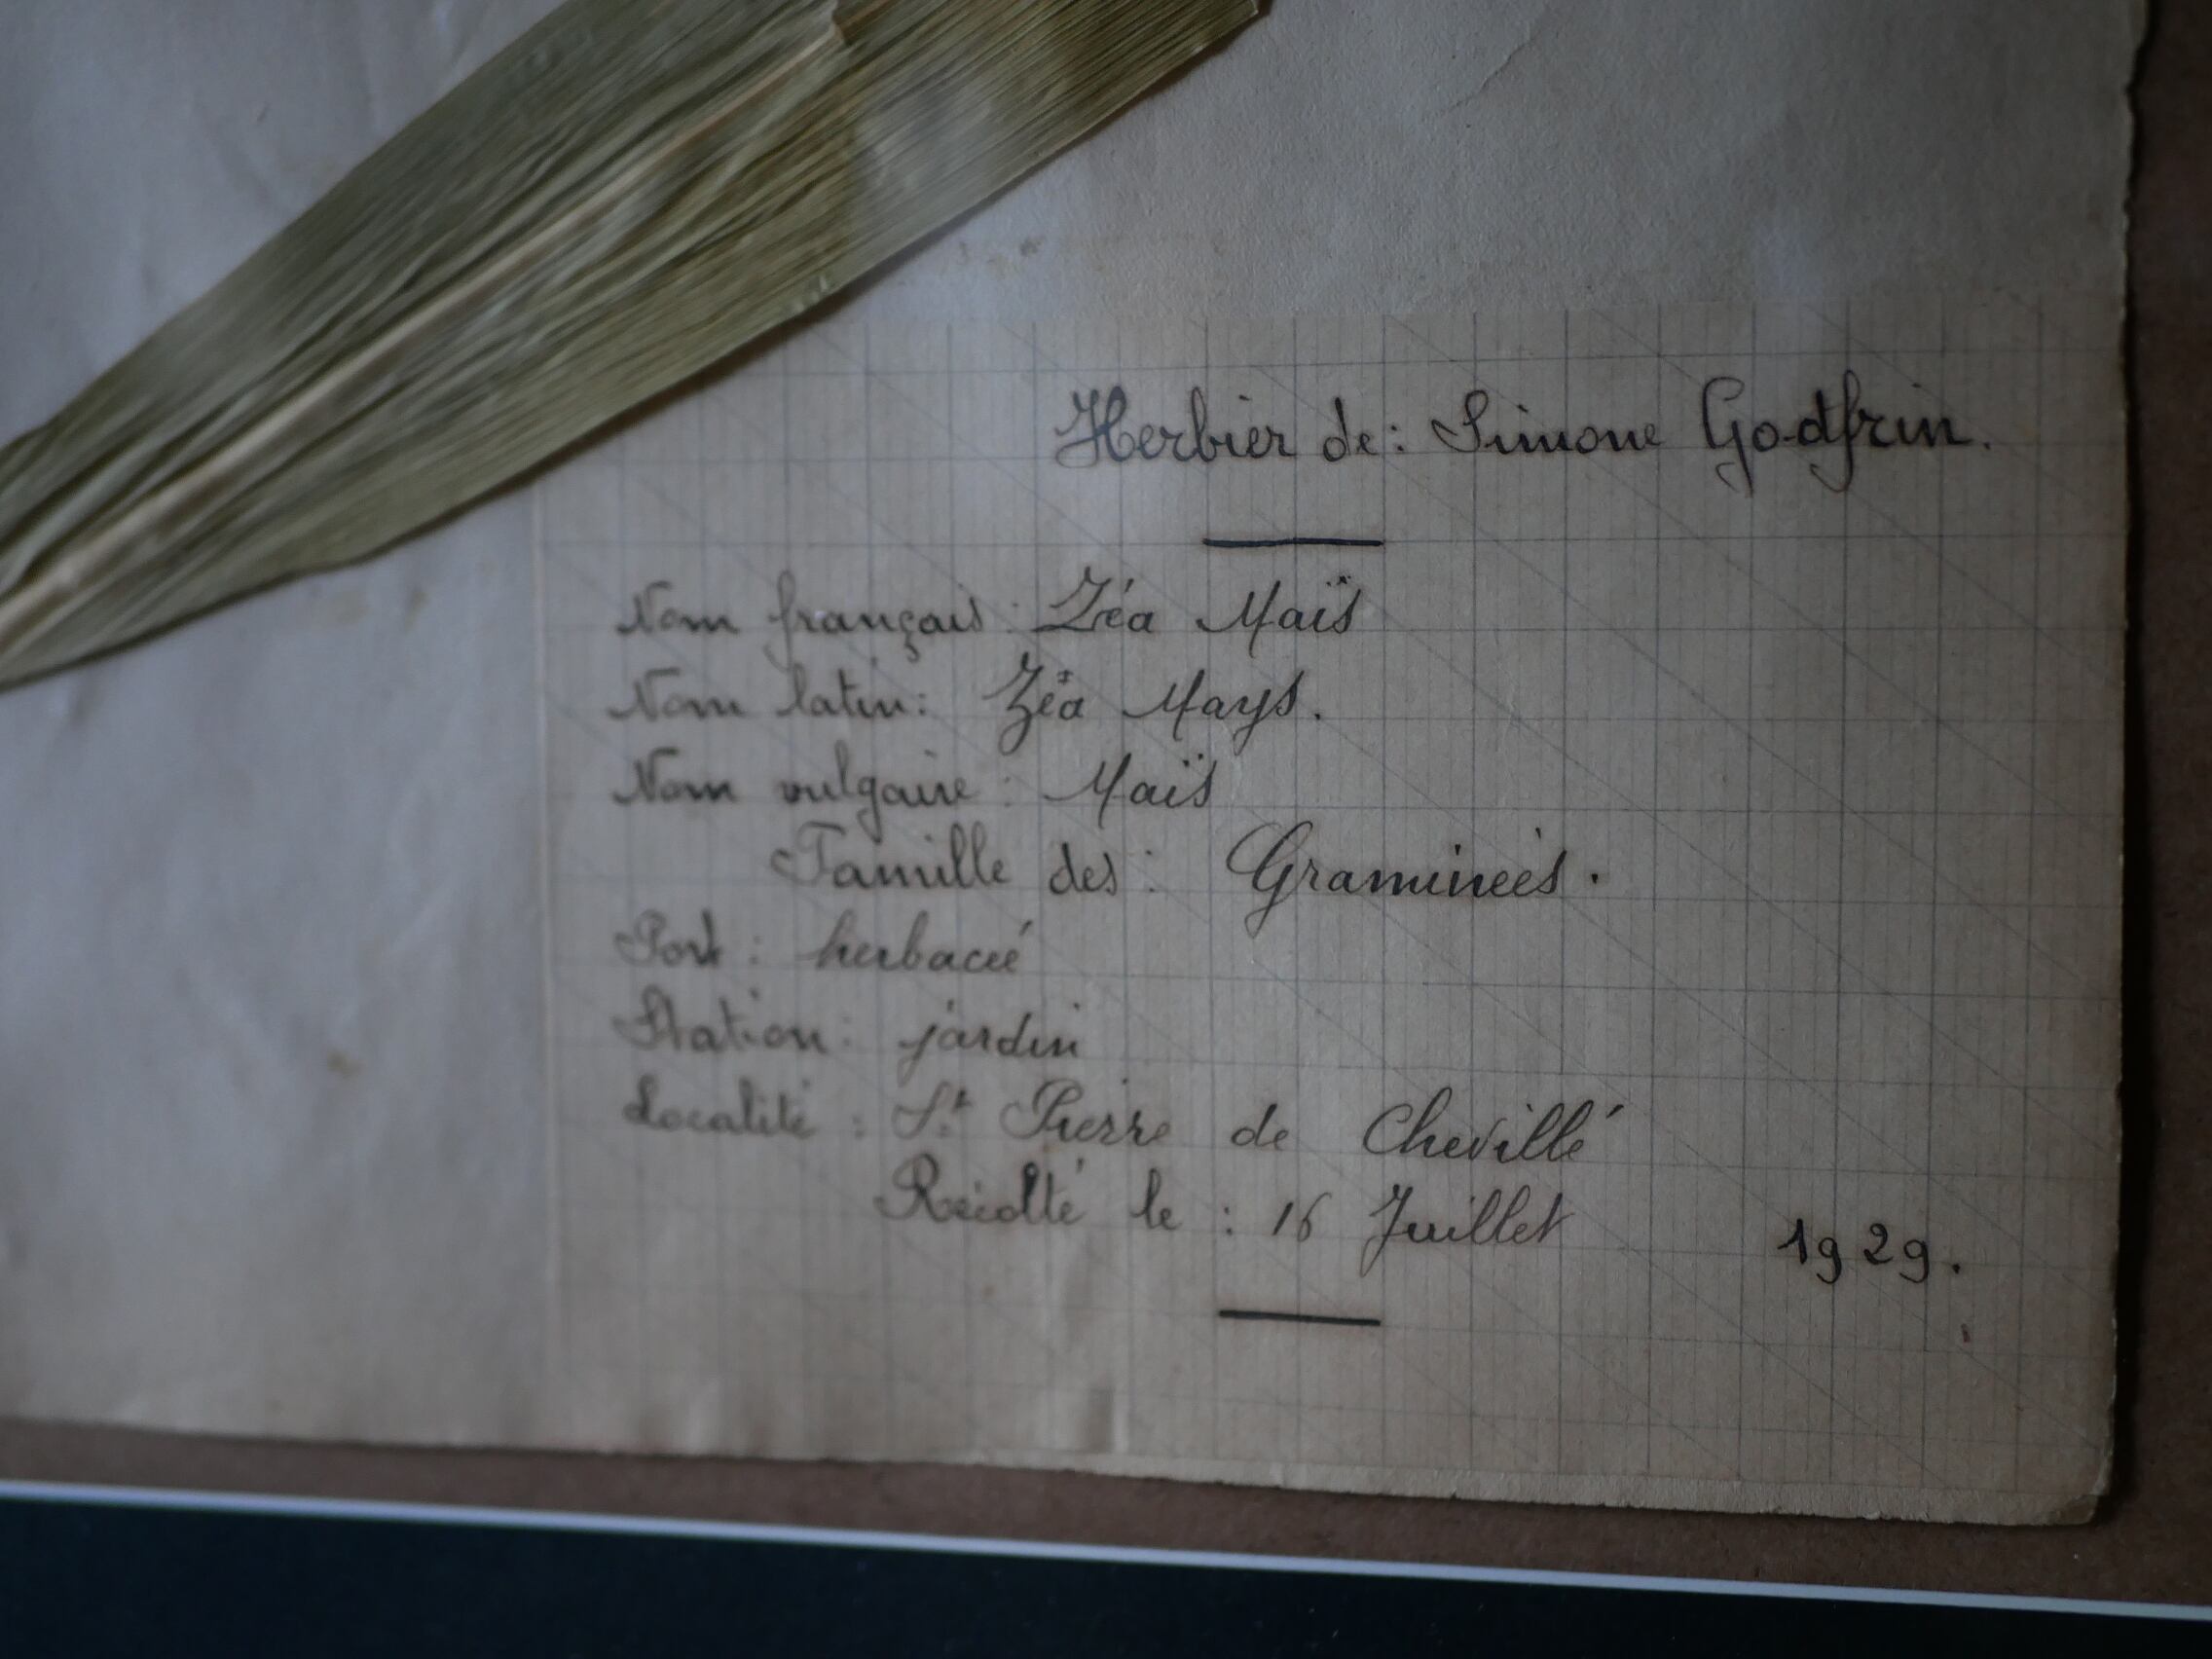 Herbier de: Simone Godfrin.
Nom français: Zéa Maïs
Nom latin: Zéa Mays.
Nom vulgaire: Maïs
Famille des: Graminées.
Port: herbacé
Station: jardin
Localité: St Pierre de Chevillé
Récolté le: 16 Juillet 1929.